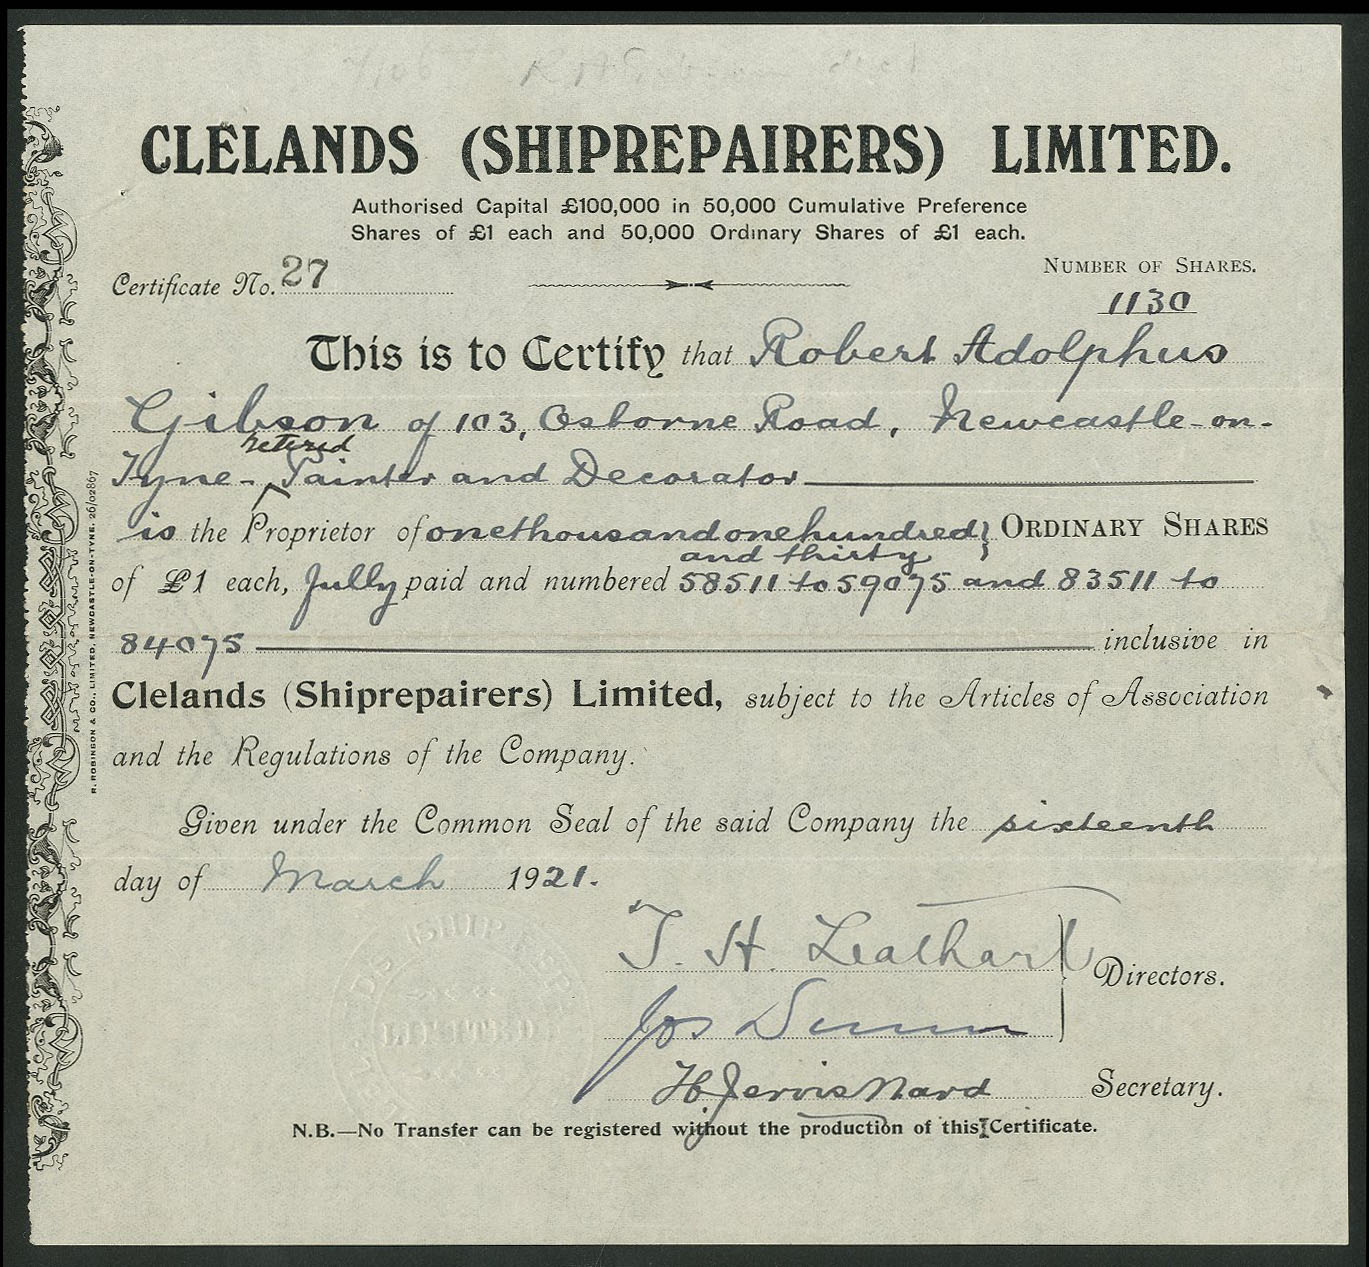 CLELANDS (SHIPREPAIRERS) LIMITED.
Authorised Capital £100,000 in 50,000 Cumulative Preference
Shares of £1 each and 50,000 Ordinary Shares of £1 each.
Certificate No. 27
NUMBER OF SHARES.
1130
This is to Certify that Robert Adolphus
Gibson of 103, Osborne Road, Newcastle-on-
retired
Tyne - Painter and Decorator
is the Proprietor of one thousand one hundred ORDINARY SHARES
and thirty
of £1 each, fully paid and numbered 58511 to 59075 and 83511 to
84075 inclusive in
Clelands (Shiprepairers) Limited, subject to the Articles of Association
and the Regulations of the Company.
Given under the Common Seal of the said Company the sixteenth
day of March 1921.
T. H. Leathart
Directors.
Jos
H Jervis Ward Secretary.
N.B.—No Transfer can be registered without the production of this Certificate.
R. ROBINSON & CO., LIMITED, NEWCASTLE-ON-TYNE. 26/02867
LIMITED